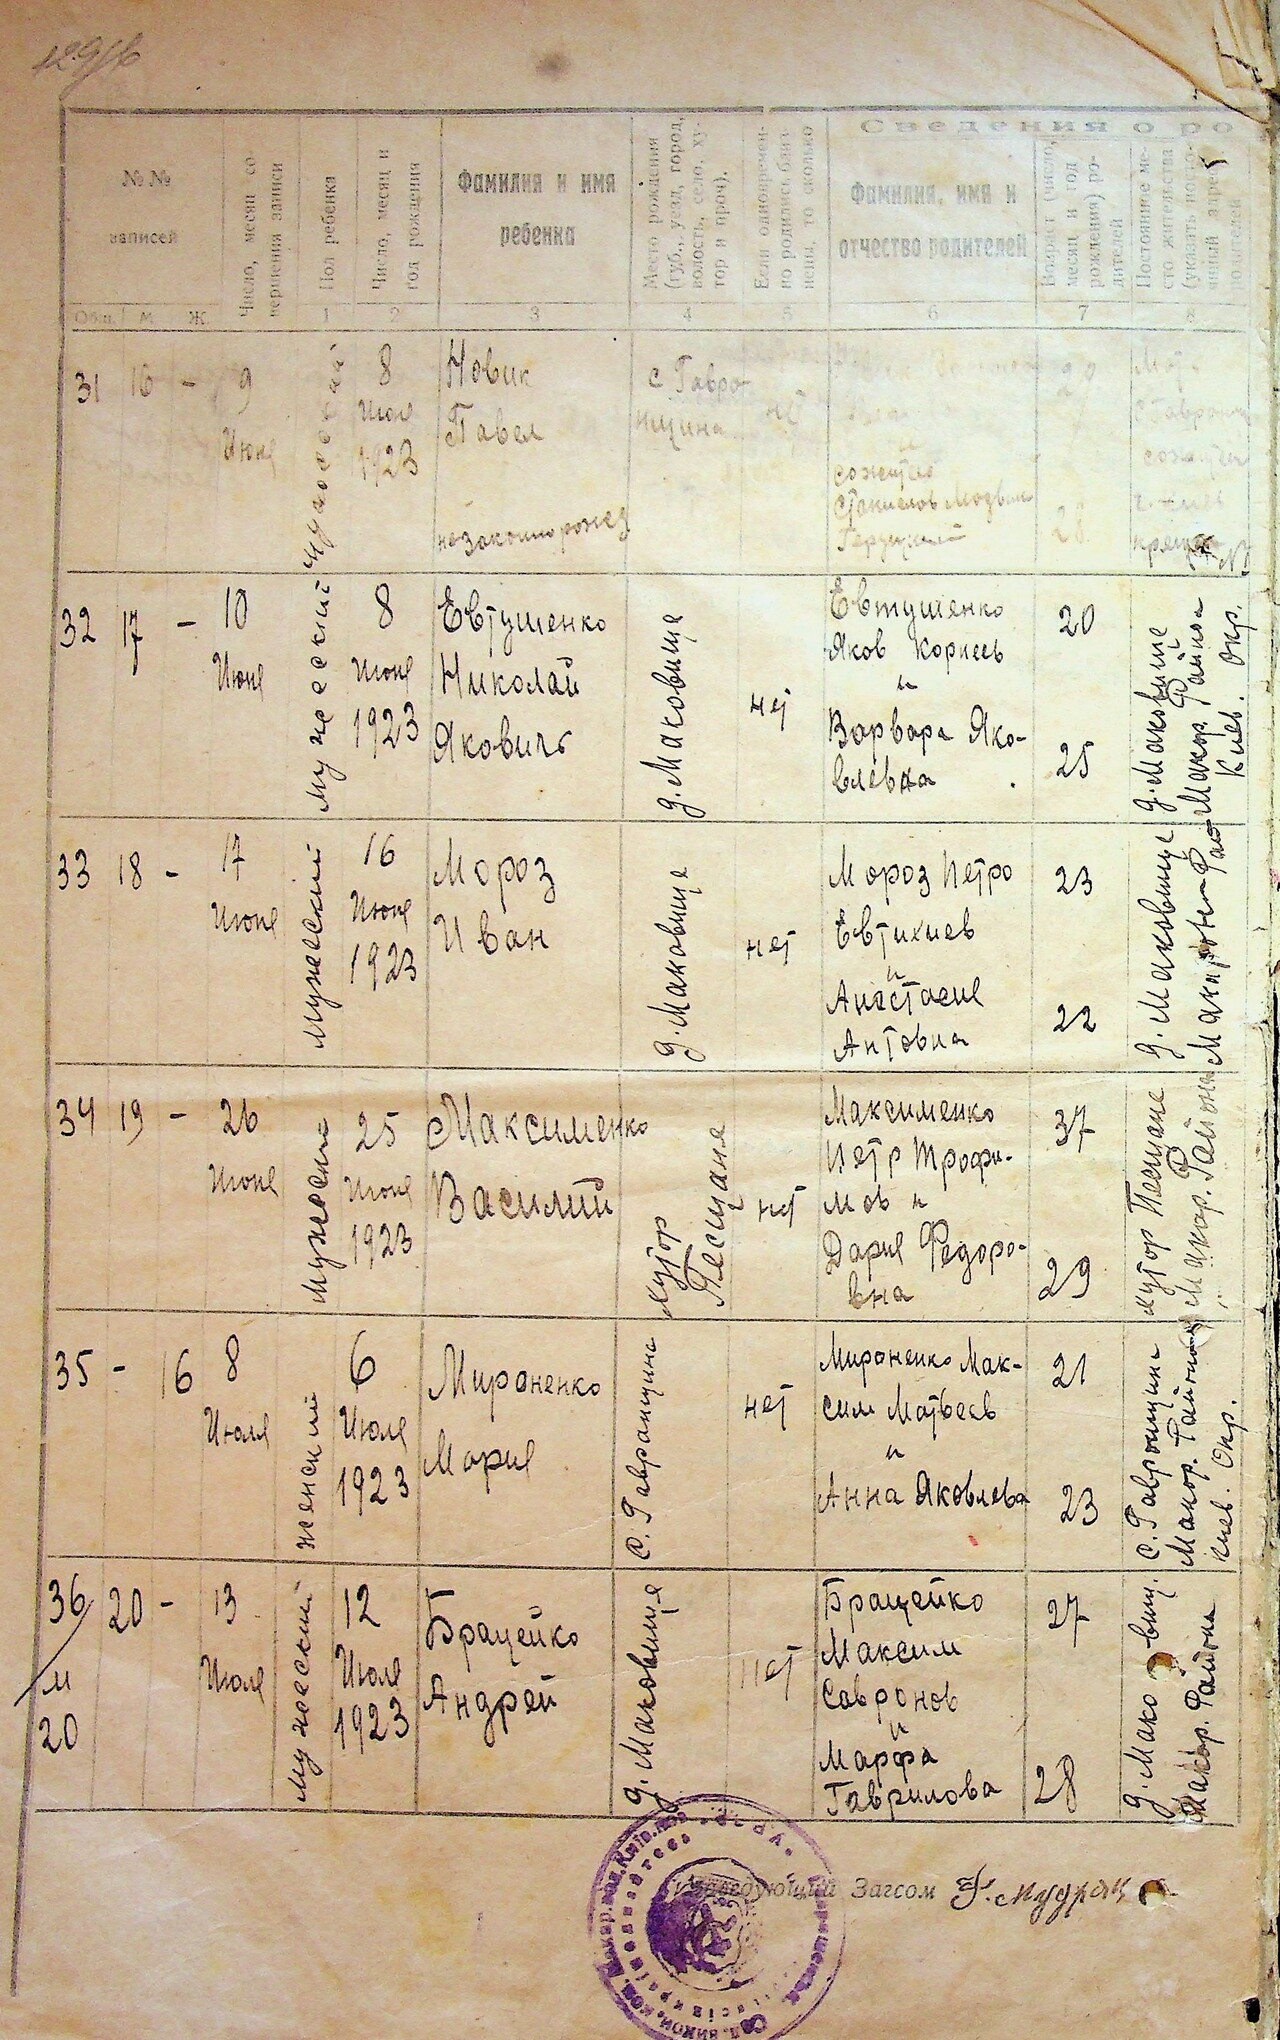 Сведения о ро
№№
записей
Общ. М. Ж.
Число, месяц со-
вершения записи
Пол ребенка
1
Число, месяц и
год рождения
2
Фамилия и имя
ребенка
3
Место рождения
(губ., уезд, город,
волость, село, ху-
тор и проч).
4
Если одновремен-
но родились близ-
нецы, то сколько
5
Фамилия, имя и
отчество родителей
6
Возраст (число,
месяц и год
рождения) ро-
дителей
7
Постоянное ме-
сто жительства
31 16 -
9
Июня
мужеской
8
Июня
1923
Новик
Павел
незаконнорожед
с Гавро-
нщина
нет
и
28
32 17 -
10
Июня
мужеский
8
Июня
1923
Евтушенко
Николай
Яковичь
д. Маковище
нет
Евтушенко
Яков Корнеев
и
Варвара Яко-
влевна
20
25
д. Маковище
Макар. Района
Киев. Окр.
33 18 -
17
Июня
мужеский
16
Июня
1923
Мороз
Иван
д. Маковище
нет
Мороз Петро
Евтихиев
и
Анастасия
Антовна
23
22
д. Маковище
34 19 -
26
Июня
мужеский
25
Июня
1923
Максименко
Василий
хутор
Песщаня
нет
Максименко
Петр Трофи-
мов и
Дария Федоро-
вна
37
29
хутор Песщане
Макар. Района
35 - 16
8
Июля
женский
6
Июля
1923
Мироненко
Мария
с. Гавронщина
нет
Мироненко Мак-
сим Матвеев
и
Анна Яковлева
21
23
с. Гавронщина
Макар. Района
Киев. Окр.
36 20 -
м
20
13
Июля
мужеский
12
Июля
1923
Брацейко
Андрей
д. Маковище
нет
Брацейко
Максим
Савронов
и
Марфа
Гаврилова
27
28
д. Маковищ.
Макар. Района
Заведующий Загсом Г. Мудрак